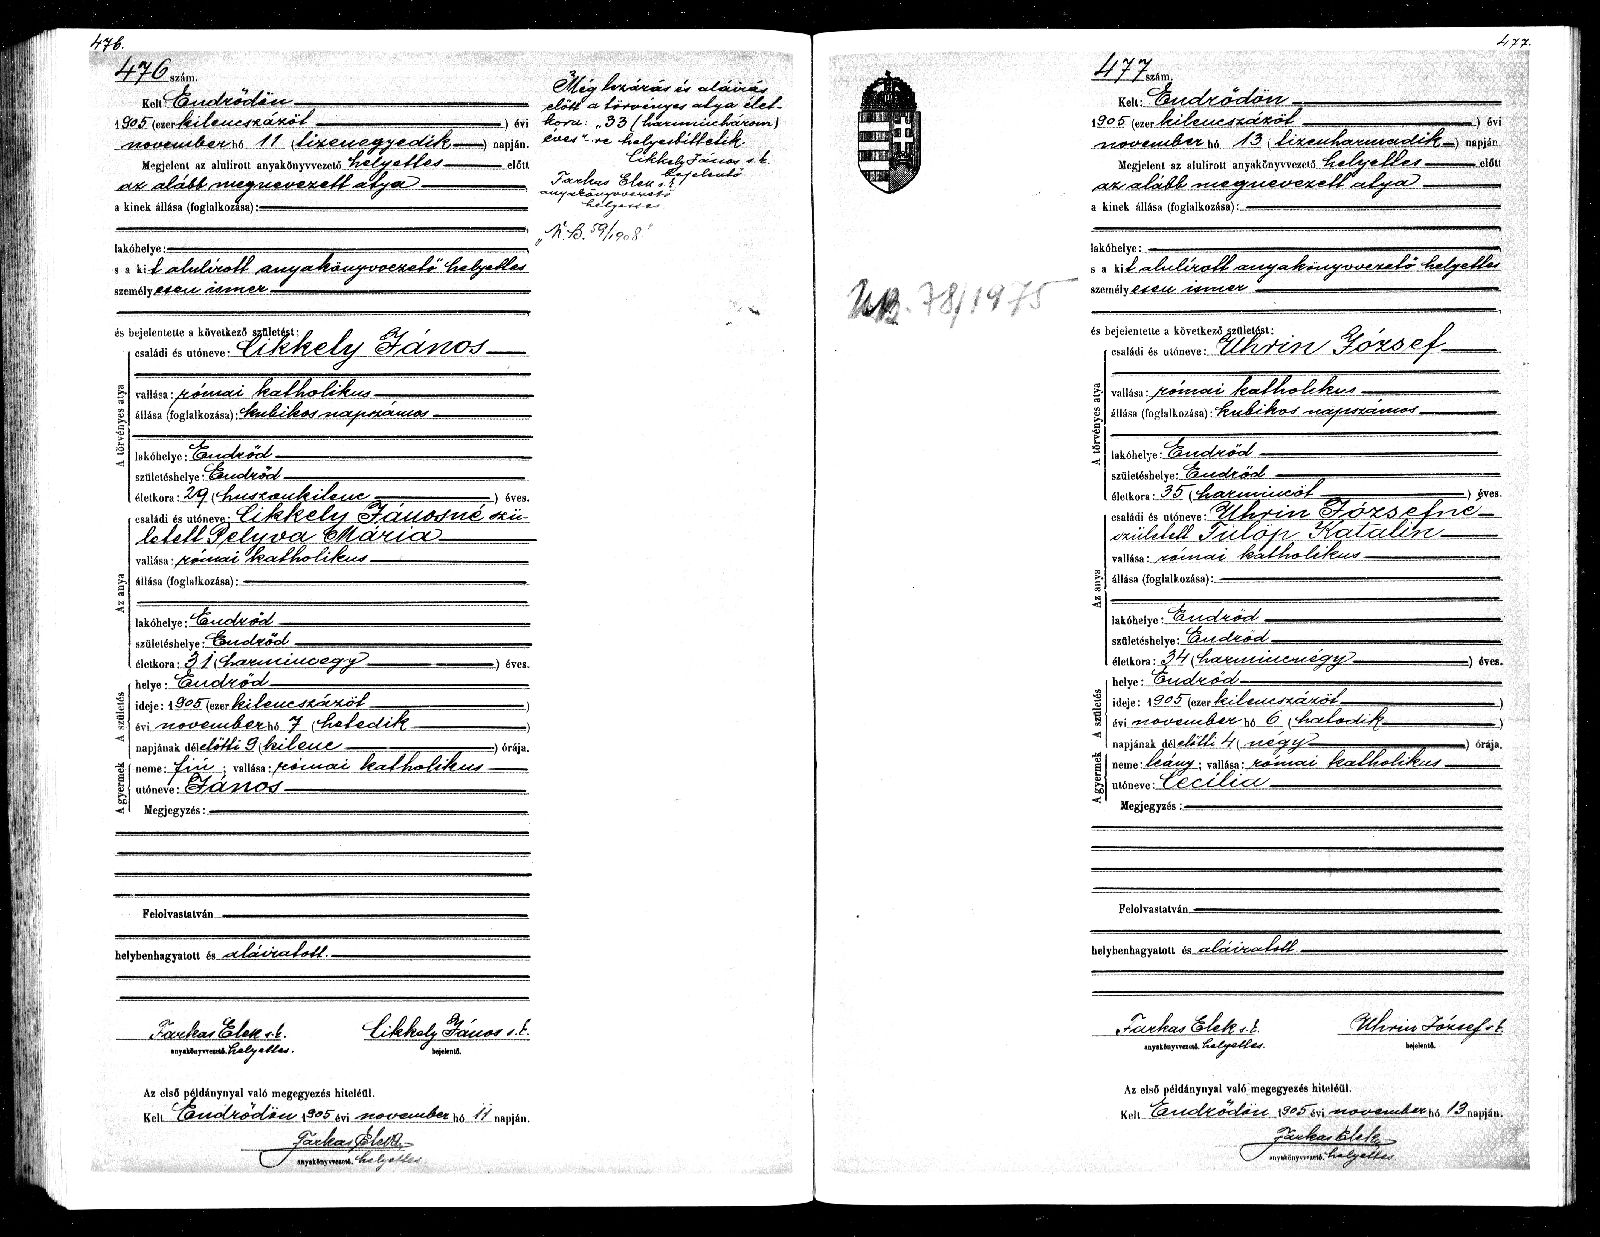 476.
476 szám.
Kelt Endrődön
1905 (ezer kilencszázöt) évi
november hó 11 (tizenegyedik) napján.
Megjelent az alulirott anyakönyvvezető helyettes előtt
az alább megnevezett atya
a kinek állása (foglalkozása):
lakóhelye:
s a kit alulírott anyakönyvvezető helyettes
személyesen ismer
és bejelentette a következő születést:
A törvényes atya
családi és utóneve: Cikkely János
vallása: római katholikus
állása (foglalkozása): kubikos napszámos
lakóhelye: Endrőd
születéshelye: Endrőd
életkora: 29 (huszonkilenc) éves.
Az anya
családi és utóneve: Cikkely Jánosné szü-
letett Pelyva Mária
vallása: római katholikus
állása (foglalkozása):
lakóhelye: Endrőd
születéshelye: Endrőd
életkora: 31 (harmincegy) éves.
A születés
helye: Endrőd
ideje: 1905 (ezer kilencszázöt)
évi november hó 7 (hetedik)
napjának délelőtti 9 (kilenc) órája.
A gyermek
neme: fiú; vallása: római katholikus
utóneve: János
Megjegyzés:
Felolvastatván
helybenhagyatott és aláiratott.
Farkas Elek s.k. Cikkely János s.k.
anyakönyvvezető helyettes. bejelentő.
Az első példánynyal való megegyezés hiteléül.
Kelt Endrődön 1905 évi november hó 11 napján.
Farkas Elek
anyakönyvvezető helyettes
Még lezárás és aláírás
előtt a törvényes atya élet-
kora: „33 (harminchárom)
éves"-re helyesbíttetik.
Cikkely János s.k.
bejelentő
Farkas Elek s.k.
anyakönyvvezető
helyettes
„N.B. 59/1908"
477.
477 szám.
Kelt: Endrődön
1905 (ezer kilencszázöt) évi
november hó 13 (tizenharmadik) napján
Megjelent az alulirott anyakönyvvezető helyettes előtt
az alább megnevezett atya
a kinek állása (foglalkozása):
lakóhelye:
s a kit alulírott anyakönyvvezető helyettes
személyesen ismer
és bejelentette a következő születést:
A törvényes atya
családi és utóneve: Uhrin József
vallása: római katholikus
állása (foglalkozása): kubikos napszámos
lakóhelye: Endrőd
születéshelye: Endrőd
életkora: 35 (harmincöt) éves.
Az anya
családi és utóneve: Uhrin Józsefné
született Tülöp Katalin
vallása: római katholikus
állása (foglalkozása):
lakóhelye: Endrőd
születéshelye: Endrőd
életkora: 34 (harmincnégy) éves.
A születés
helye: Endrőd
ideje: 1905 (ezer kilencszázöt)
évi november hó 6 (hatodik)
napjának délelőtti 4 (négy) órája.
A gyermek
neme: leány; vallása: római katholikus
utóneve: Cecilia
Megjegyzés:
Felolvastatván
helybenhagyatott és aláiratott
Farkas Elek s.k. Uhrin József s.k.
anyakönyvvezető helyettes. bejelentő.
Az első példánynyal való megegyezés hiteléül.
Kelt Endrődön 1905 évi november hó 13 napján.
Farkas Elek
anyakönyvvezető helyettes
UB. 78/1975